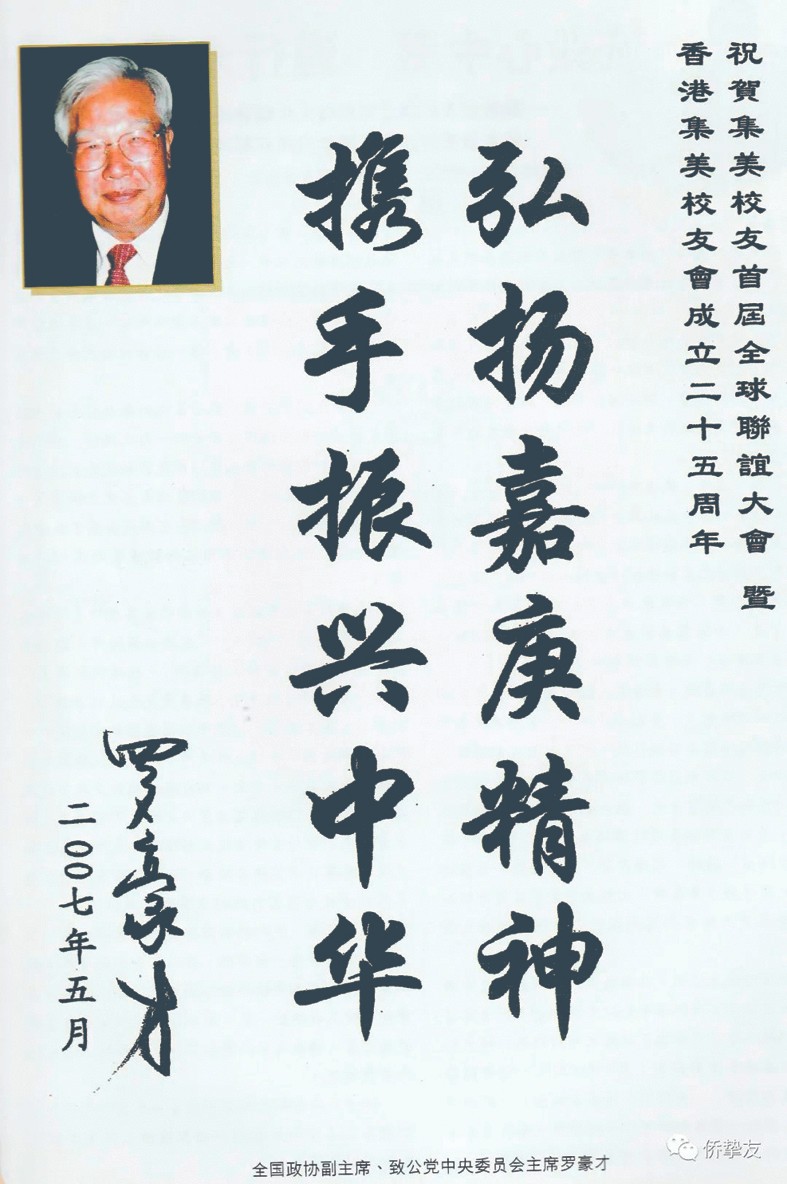 祝賀集美校友首屆全球聯誼大會暨
香港集美校友會成立二十五周年
弘扬嘉庚精神
携手振兴中华
罗豪才
二〇〇七年五月
全国政协副主席、致公党中央委员会主席罗豪才
侨挚友